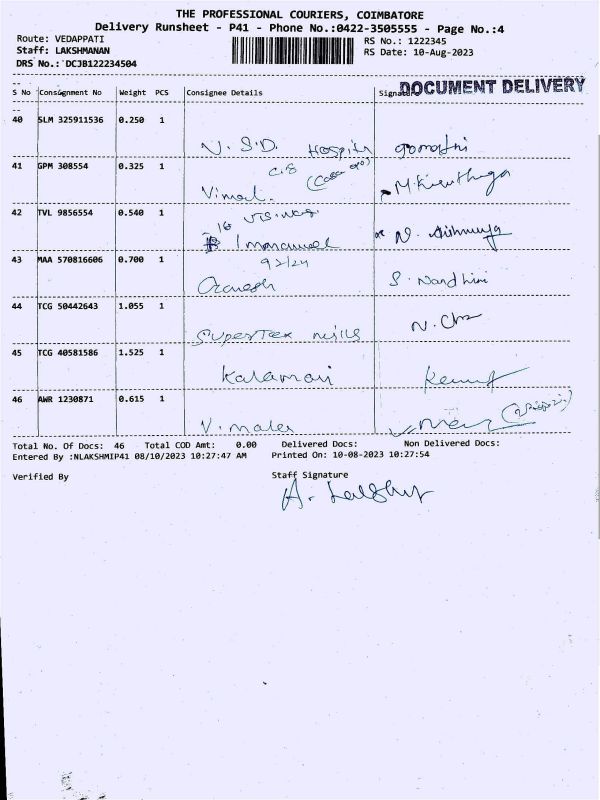 THE PROFESSIONAL COURIERS, COIMBATORE
Delivery Runsheet - P41 - Phone No.:0422-3505555 - Page No.:4
Route: VEDAPPATI RS No.: 1222345
Staff: LAKSHMANAN RS Date: 10-Aug-2023
DRS No.: DCJB122234504
DOCUMENT DELIVERY
S No Consignment No Weight PCS Consignee Details Signature
40 SLM 325911536 0.250 1
N. S.D. Hospity gomathi
41 GPM 308554 0.325 1
Vimal.
42 TVL 9856554 0.540 1
16
Immanuvel
43 MAA 570816606 0.700 1
92/24
S. Nandhini
44 TCG 50442643 1.055 1
Supertex mills
45 TCG 40581586 1.525 1
Kalamani
46 AWR 1230871 0.615 1
V. males
Total No. Of Docs: 46 Total COD Amt: 0.00 Delivered Docs: Non Delivered Docs:
Entered By :NLAKSHMIP41 08/10/2023 10:27:47 AM Printed On: 10-08-2023 10:27:54
Verified By Staff Signature